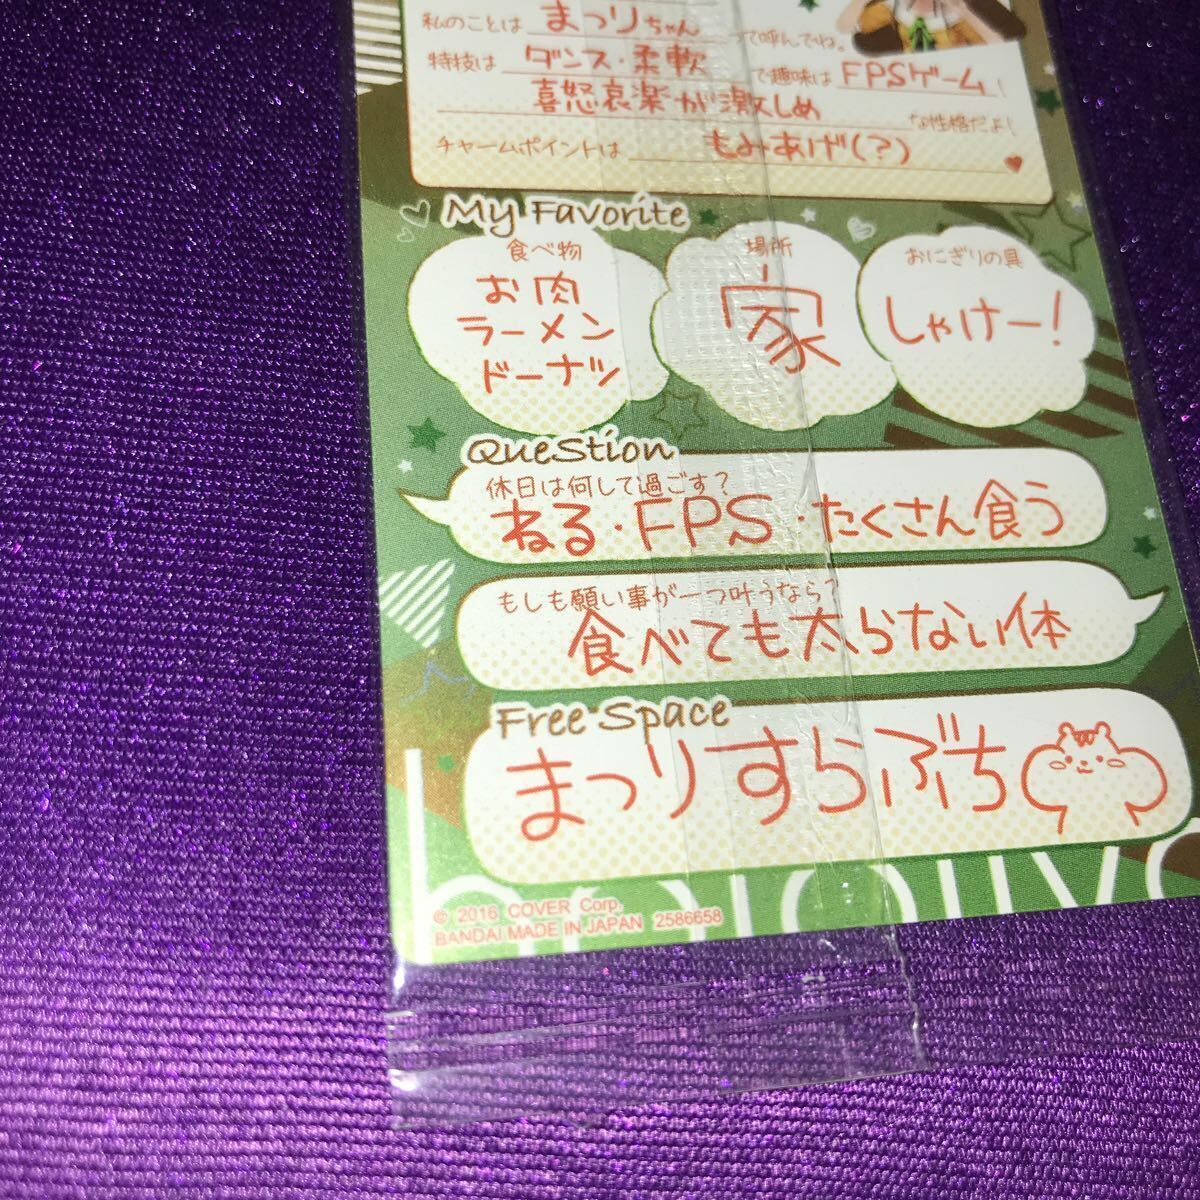 私のことは まつりちゃん って呼んでね。
特技は ダンス・柔軟 で趣味は FPSゲーム !
喜怒哀楽が激しめ な性格だよ!
チャームポイントは もみあげ(?)
My Favorite
食べ物
お肉
ラーメン
ドーナツ
場所
家
おにぎりの具
しゃけー!
QueStion
休日は何して過ごす?
ねる・FPS・たくさん食う
もしも願い事が一つ叶うなら?
食べても太らない体
Free Space
まつりすらぶち
© 2016 COVER Corp.
BANDAI MADE IN JAPAN 2586658